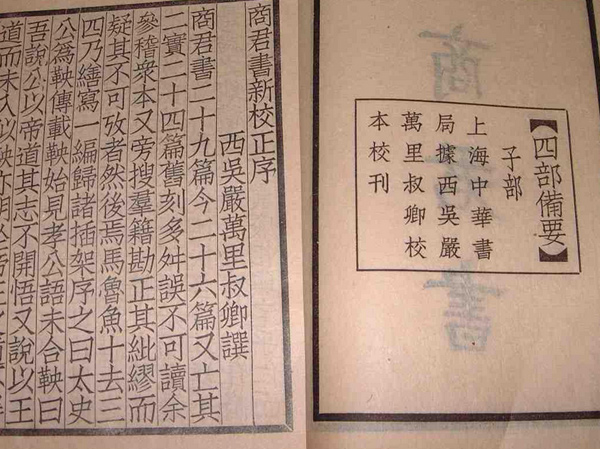 【四部備要】
子部
上海中華書
局據西吳嚴
萬里叔卿校
本校刊
商君書新校正序
西吳嚴萬里叔卿譔
商君書二十九篇今二十六篇又亡其
二實二十四篇舊刻多舛誤不可讀余
參稽衆本又旁搜羣籍勘正其紕繆而
疑其不可攷者然後焉馬魯魚十去三
四乃繕寫一編歸諸插架序之曰太史
公爲鞅傳載鞅始見孝公語未合鞅曰
吾說公以帝道其志不開悟又說以王
道而未入